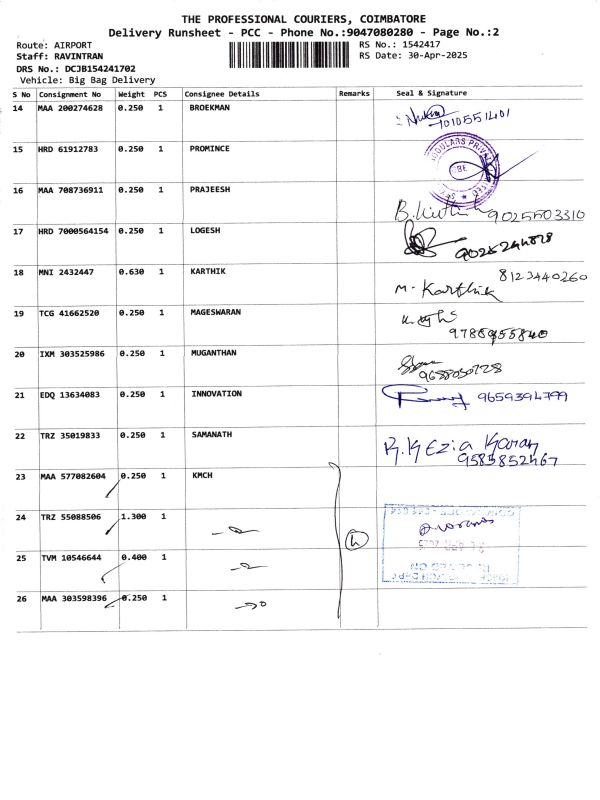 THE PROFESSIONAL COURIERS, COIMBATORE
Delivery Runsheet - PCC - Phone No.:9047080280 - Page No.:2
Route: AIRPORT
RS No.: 1542417
Staff: RAVINTRAN
RS Date: 30-Apr-2025
DRS No.: DCJB154241702
Vehicle: Big Bag Delivery
S No Consignment No Weight PCS Consignee Details Remarks Seal & Signature
14 MAA 200274628 0.250 1 BROEKMAN
15 HRD 61912783 0.250 1 PROMINCE
16 MAA 708736911 0.250 1 PRAJEESH 9025503310
17 HRD 7000564154 0.250 1 LOGESH
18 MNI 2432447 0.630 1 KARTHIK 8123440260
M. Karthik
19 TCG 41662520 0.250 1 MAGESWARAN
20 IXM 303525986 0.250 1 MUGANTHAN
21 EDQ 13634083 0.250 1 INNOVATION 9659394799
22 TRZ 35019833 0.250 1 SAMANATH
9585852467
23 MAA 577082604 0.250 1 KMCH
24 TRZ 55088506 1.300 1
25 TVM 10546644 0.400 1
26 MAA 303598396 0.250 1